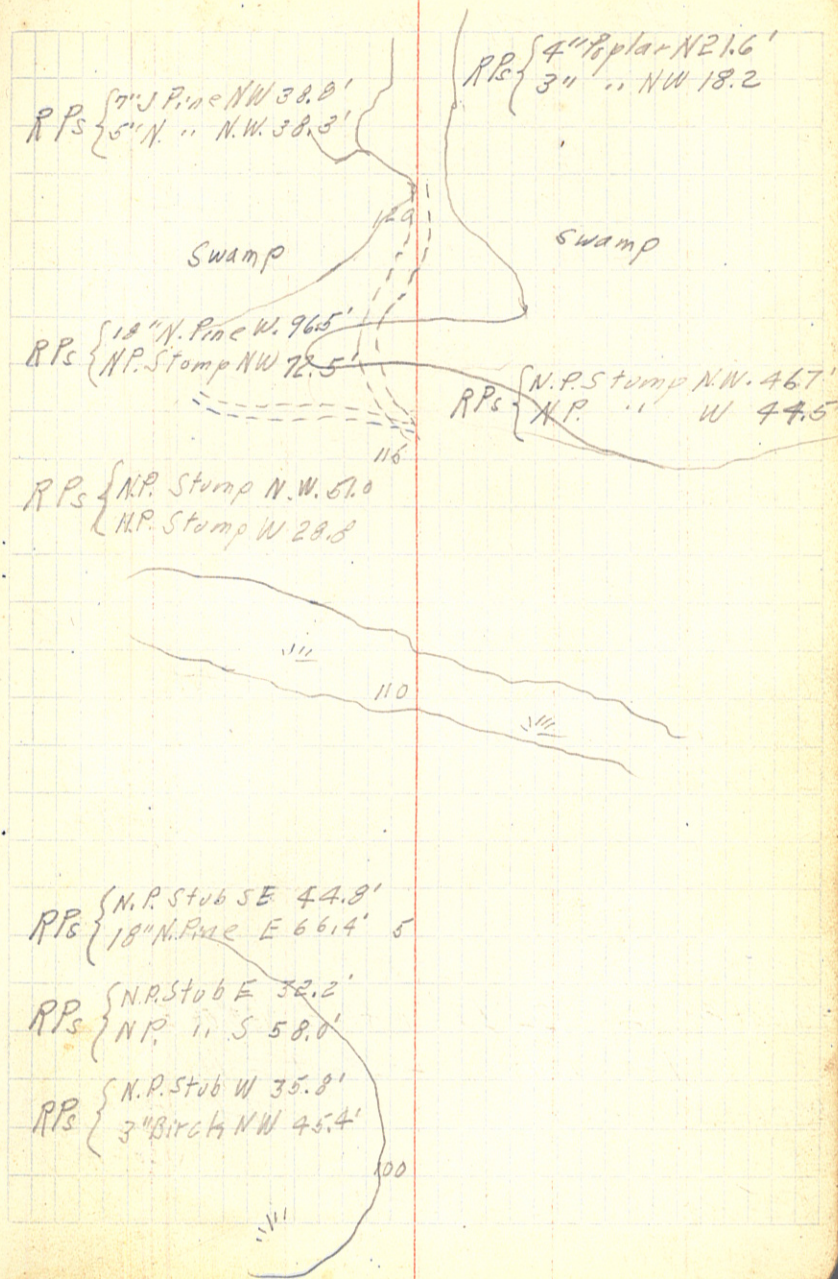 RPs { 4" Poplar N 21.6'
3" " NW 18.2
RPs { 7" J Pine NW 38.8'
5" N. " N.W. 38.3'
120
Swamp
Swamp
RPs { 18" N. Pine W. 96.5'
N.P. Stump NW 72.5'
RPs { N.P. Stump N.W. 46.7'
N.P. " W 44.5
116
RPs { N.P. Stump N.W. 51.0
N.P. Stump W 28.8
110
RPs { N.P. Stub SE 44.8'
18" N. Pine E 66.4' 5
RPs { N.P. Stub E 32.2'
N.P. " S 58.0'
RPs { N.P. Stub W 35.8'
3" Birch NW 45.4'
100